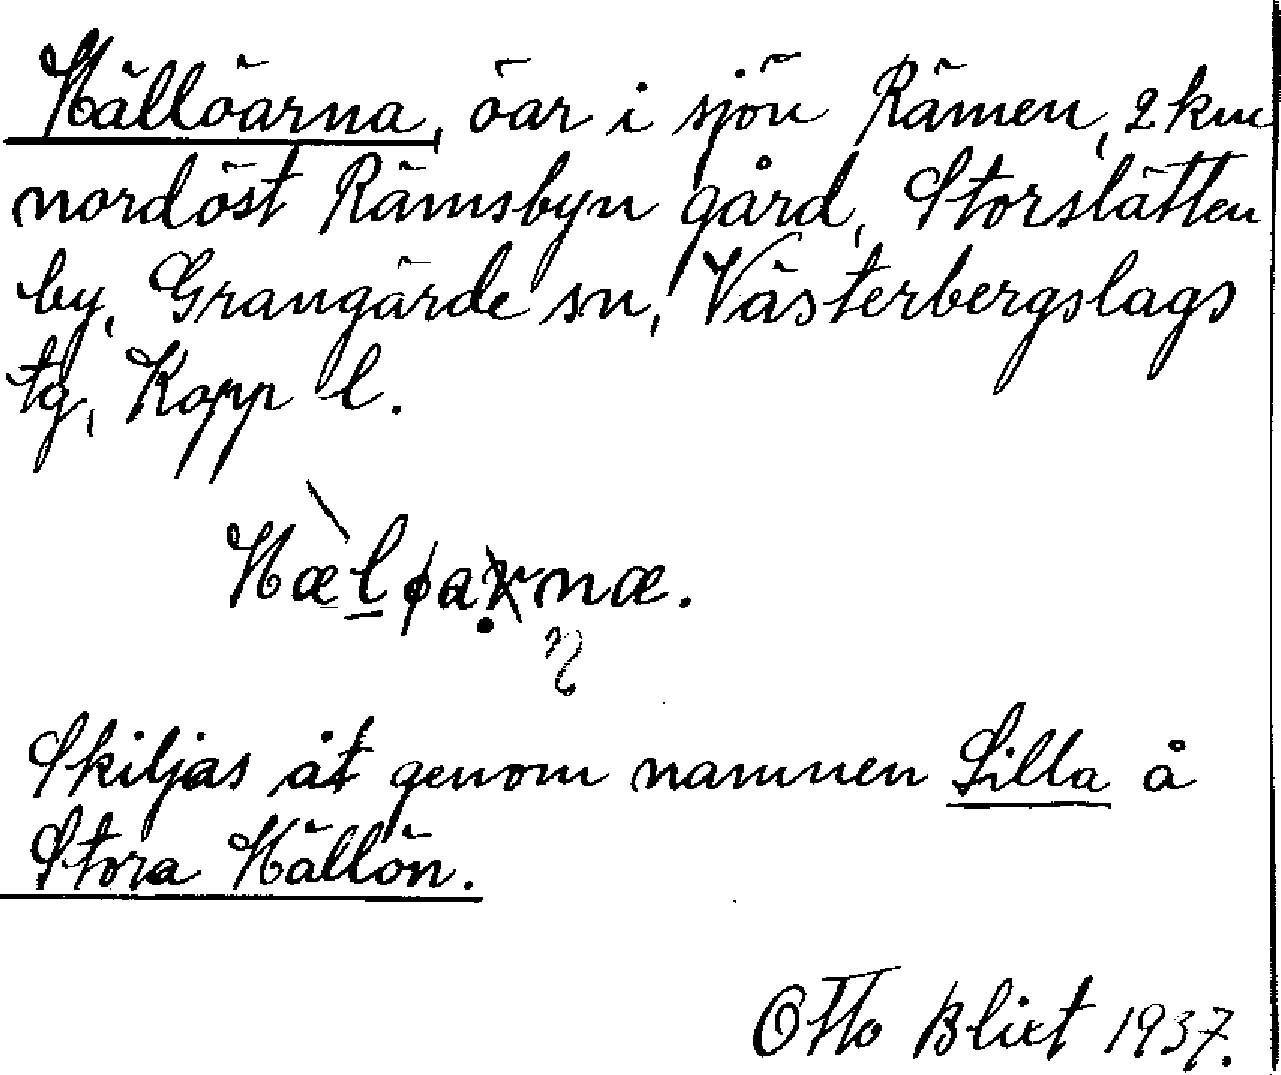 Hällöarna, öar i sjön Rämen, 2 km
nordöst Rämsbyn gård, Storslätten
by, Grangärde sn, Västerbergslags
tg, Kopp l.
Hæ̀lφarnæ.
Skiljas åt genom namnen Lilla å
Stora Hällön.
Otto Blixt 1937.